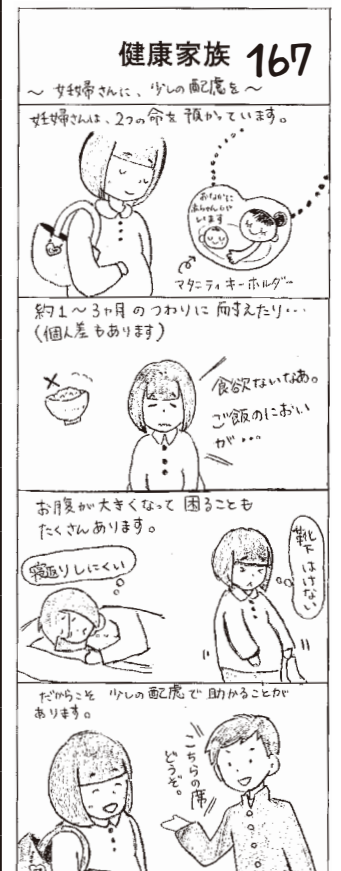 健康家族 167
～ 妊婦さんに、少しの配慮を ～
妊婦さんは、2つの命を預かっています。
おなかに
赤ちゃんが
います
マタニティキーホルダー
約1～3ヵ月のつわりに耐えたり・・・
(個人差もあります)
食欲ないなあ。
ご飯のにおい
が・・・
お腹が大きくなって困ることも
たくさんあります。
寝返りしにくい
靴下はけない
だからこそ 少しの配慮で助かることが
あります。
こちらの席
どうぞ。